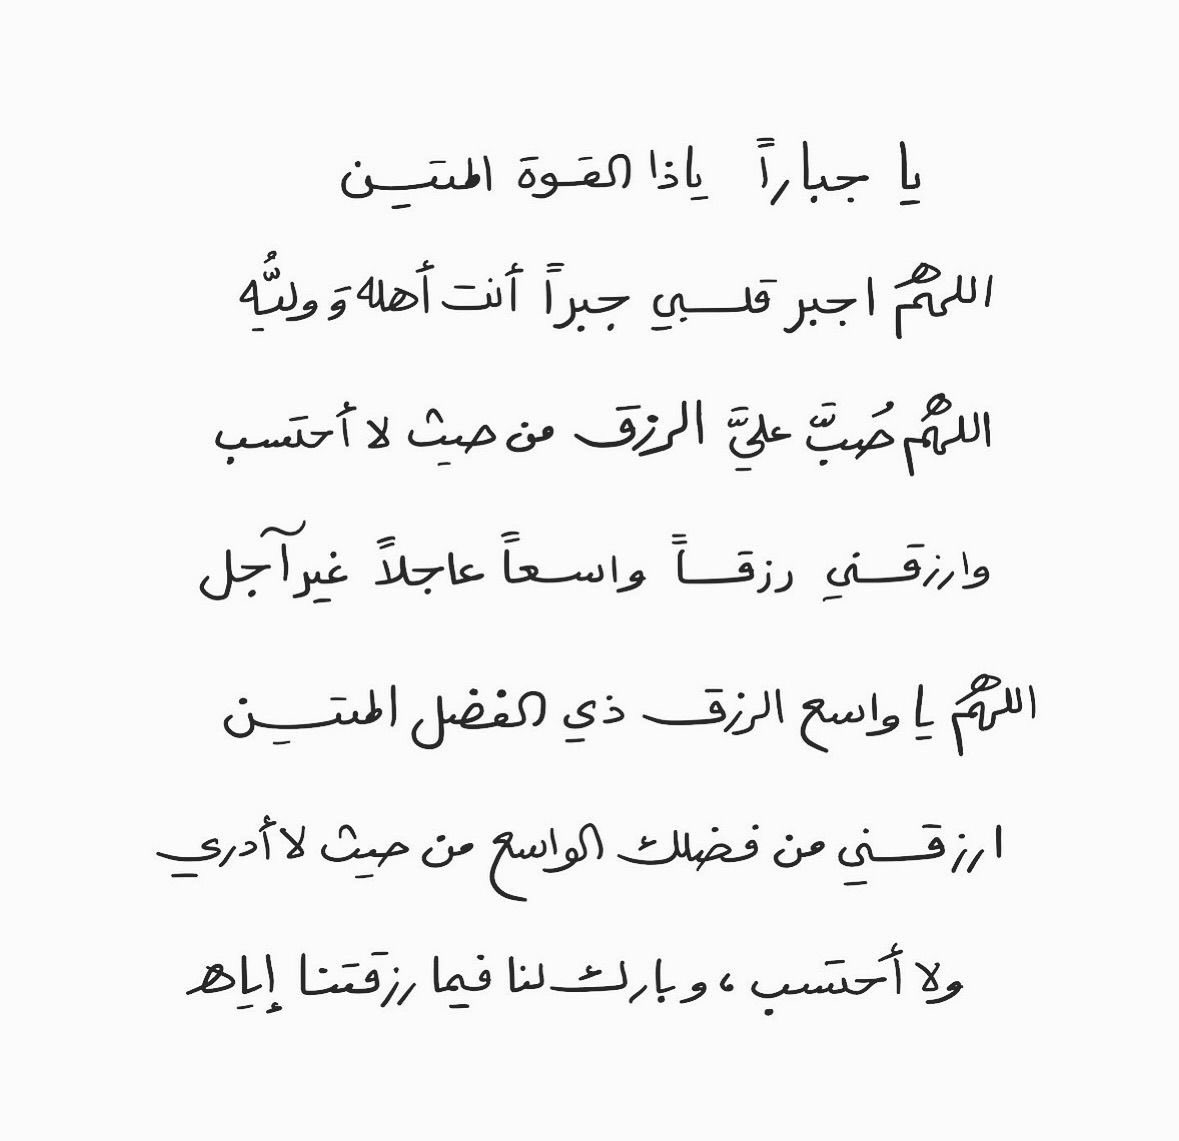 يا جباراً ياذا القوة المتين
اللهمُ اجبر قلبي جبراً أنت أهله وَ وليُّه
اللهمُ صُبَّ عليَّ الرزق من حيث لا أحتسب
وارزقني رزقاً واسعاً عاجلاً غير آجل
اللهمُ يا واسع الرزق ذي الفضل المتين
ارزقني من فضلك الواسع من حيث لا أدري
ولا أحتسب، وبارك لنا فيما رزقتنا إياه